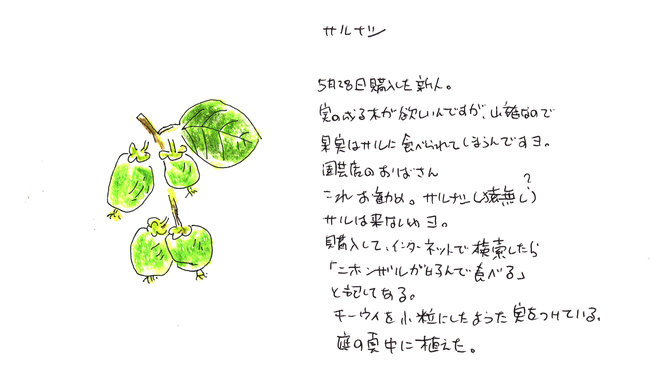 サルナシ
5月28日購入した新人。
実の成る木が欲しいんですが、山雑なので
果実はサルに食べられてしまうんですヨ。
園芸店のおばさん
これお勧め。サルナシ(猿無し?)
サルは来ないわヨ。
購入して、インターネットで検索したら
「ニホンザルが好んで食べる」
と記してある。
キーウイを小粒にしたような実をつけている、
庭の真中に植えた。